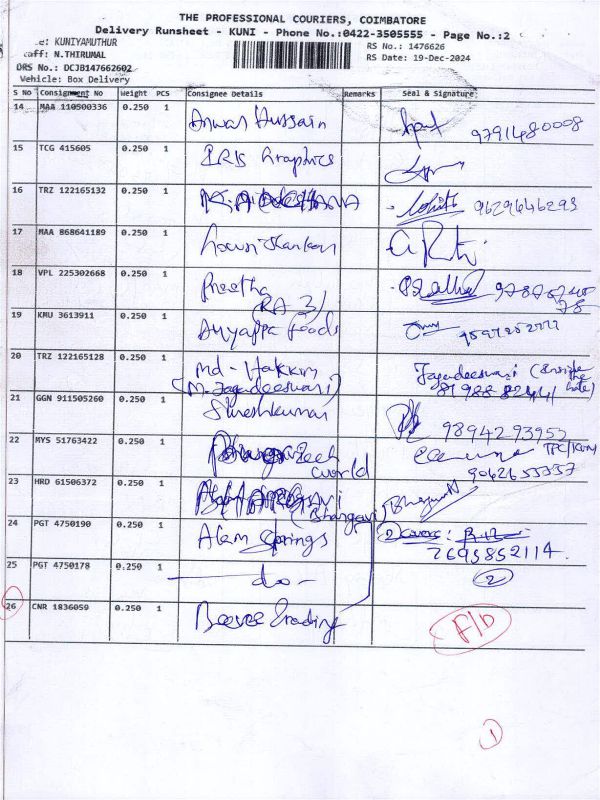 THE PROFESSIONAL COURIERS, COIMBATORE
Delivery Runsheet - KUNI - Phone No.:0422-3505555 - Page No.:2
e: KUNIYAMUTHUR
aff: N.THIRUMAL
DRS No.: DCJB147662602
Vehicle: Box Delivery
RS No.: 1476626
RS Date: 19-Dec-2024
S No Consignment No Weight PCS Consignee Details Remarks Seal & Signature
14 MAA 110500336 0.250 1 Anwar Hussain 9791480008
15 TCG 415605 0.250 1 IRIS Graphics
16 TRZ 122165132 0.250 1 9629646293
17 MAA 868641189 0.250 1
18 VPL 225302668 0.250 1 Preetha
(RA 3)
19 KMU 3613911 0.250 1 Ayyappa Foods
20 TRZ 122165128 0.250 1 Md - Hakkim Jagadeeswari (Inside the Gate)
(M. Jagadeeswari)
21 GGN 911505260 0.250 1 Sureshkumar 9894293953
22 MYS 51763422 0.250 1 world
23 HRD 61506372 0.250 1 (Bhargavi)
24 PGT 4750190 0.250 1 Alam Springs 2 covers:
7695852114.
25 PGT 4750178 0.250 1 - do - 2
26 CNR 1836059 0.250 1 Trading F/D
1